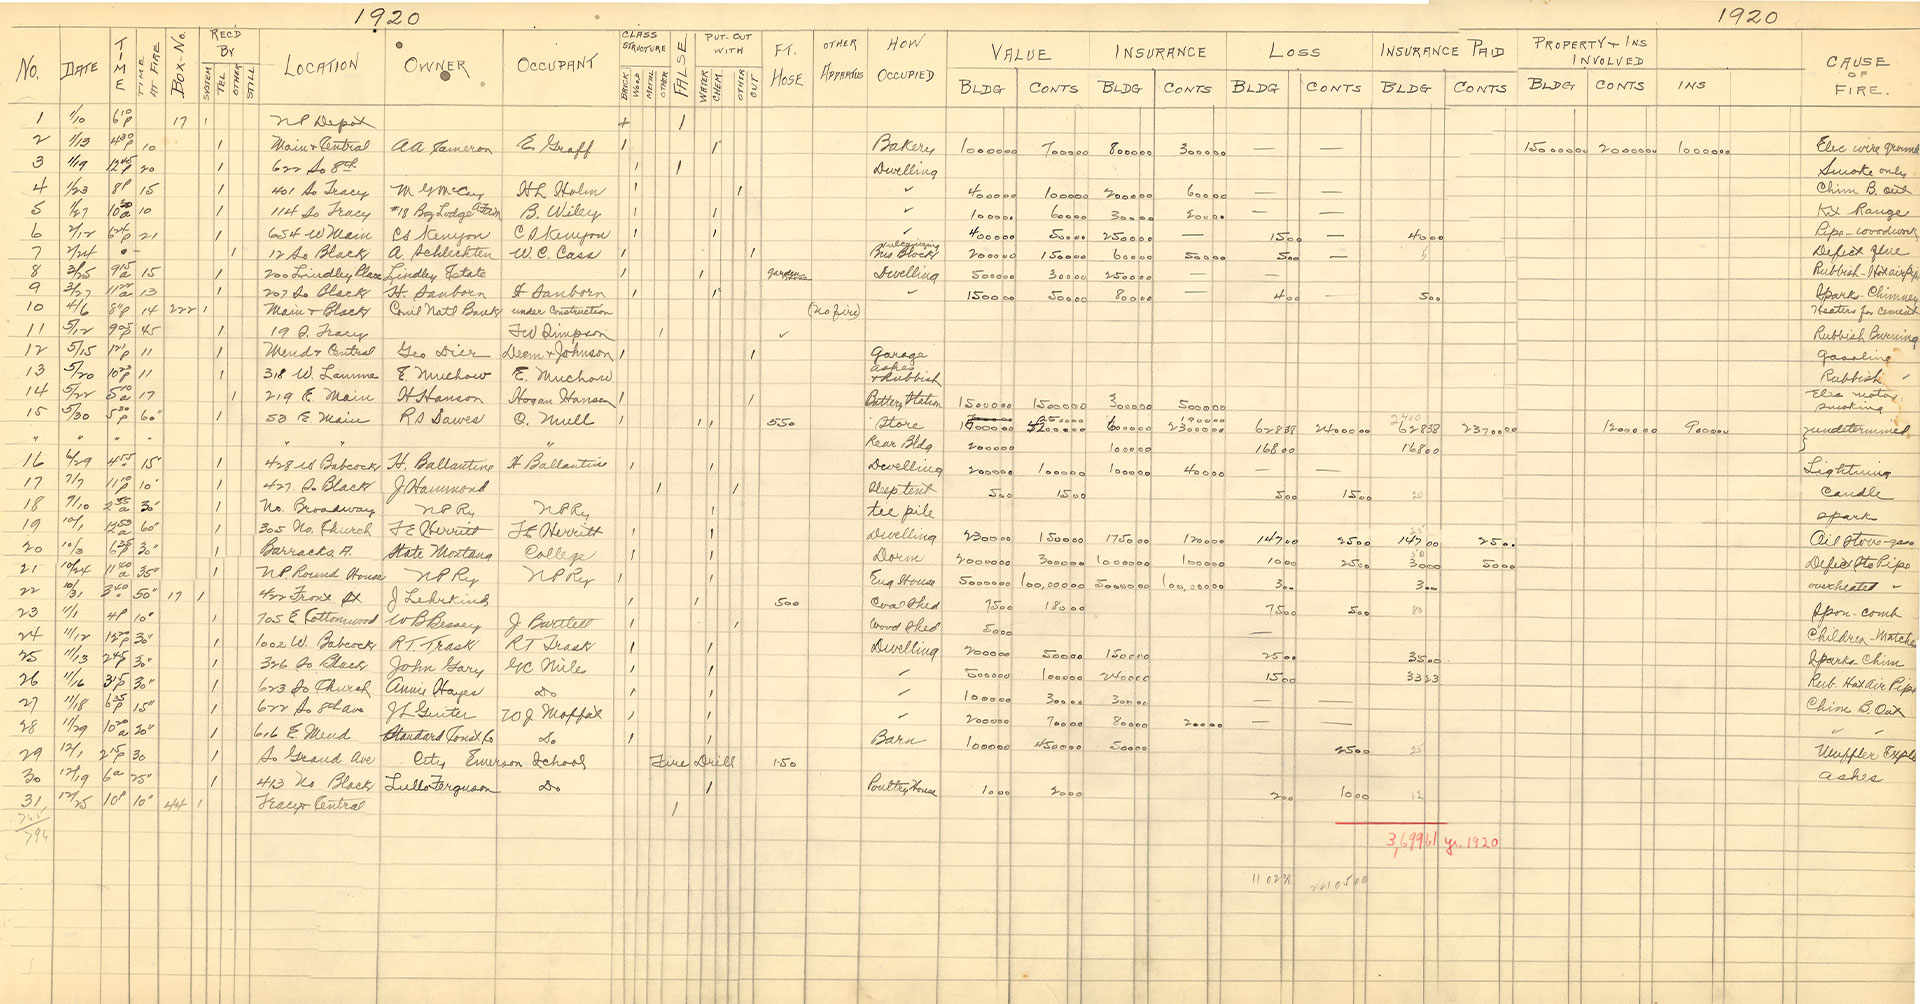 1920 1920
No. DATE TIME TIME AT FIRE BOX-No. REC'D BY SYSTEM TEL OTHER STILL LOCATION OWNER OCCUPANT CLASS STRUCTURE BRICK WOOD METAL OTHER FALSE PUT-OUT WITH WATER CHEM. OTHER OUT FT. HOSE OTHER APPARATUS HOW OCCUPIED VALUE BLDG CONTS INSURANCE BLDG CONTS LOSS BLDG CONTS INSURANCE PAID BLDG CONTS PROPERTY + INS INVOLVED BLDG CONTS INS CAUSE OF FIRE.
1 1/10 6 10 P 17 NP Depot
2 1/13 4 30 P 10 Main + Central AA Cameron E Graff Bakery 10000 00 7000 00 8000 00 3000 00 — — 15000 00 20000 00 10000 00 Elec wire ground
3 1/19 12 45 P 20 622 So 8th Dwelling Smoke only
4 1/23 8P 15 401 So Tracy M G McCay HL Holm " 4000 00 1000 00 2000 00 600 00 — — Chim B. out
5 1/27 10 30 a 10 114 So Tracy B. Wiley " 1000 00 600 00 300 00 200 00 — — Kx Range
6 2/12 6 24 P 21 654 W Main CS Kenyon CS Kenyon " 4000 00 500 00 2500 00 — 15 00 — 40 00 Pipe-woodwork
7 2/24 12 So Black A. Schlechten W.C. Cass Bus Block 2000 00 1500 00 600 00 500 00 5 00 — 5 Defect flue
8 3/25 9 15 a 15 200 Lindley Place Lindley Estate garden hose Dwelling 5000 00 300 00 2500 00 — — Rubbish-Hot air Pipe
9 3/27 11 22 a 13 207 So Black H. Sanborn H Sanborn " 1500 00 500 00 800 00 4 00 — 5 00 Sparks-Chimney
10 4/6 8 P 14 222 Main + Black Coml Natl Bank under construction (no fire) Heaters for cement
11 5/12 9 05 P 45 19 S. Tracy FW Simpson Rubbish Burning
12 5/15 1 21 P 11 Mend + Central Geo Dier Deem + Johnson Garage gasoline
13 5/20 10 23 P 11 318 W. Lamme E. Muchow E. Muchow ashes + Rubbish Rubbish "
14 5/22 5 10 a 17 219 E. Main H Hanson Hogan Hansen Battery Station 15000 00 15000 00 3000 00 5000 00 Elec motor smoking
15 5/30 5 30 P 60" 53 E. Main RS Dawes O. Mull 550 Store 6000 00 23000 00 628 38 2400 00 628 38 2370 00 12000 00 9000 00 undetermined
" " " " " " Rear Bldg 2000 00 1000 00 168 00 168 00
16 6/29 4 55 15" 428 W Babcock H. Ballantine H Ballantine Dwelling 2000 00 1000 00 1000 00 400 00 — — Lightning
17 7/7 11 10 P 10" 427 So Black J Hammond Sleep tent 5 00 15 00 5 00 15 00 20 Candle
18 9/10 2 35 a 30" No. Broadway NP Ry NP Ry tee pile spark
19 10/1 12 50 a 60" 305 No. Church FE Herritt FE Herritt Dwelling 2300 00 1500 00 1750 00 1200 00 147 00 25 00 147 00 25 00 Oil Stove-gaso
20 10/3 6 35 P 30" Barracks A. State Montana College Dorm 20000 00 3000 00 10000 00 1000 00 10 00 25 00 30 00 50 00 Defect Sto Pipe
21 10/24 11 40 a 35" NP. Round House NP Ry NP Ry Eng House 50000 00 100,000 00 50000 00 100,000 00 3 00 3 00 overheated "
22 10/31 3 40 50" 17 422 Front St J Lehrkind 500 Coal Shed 75 00 180 00 75 00 5 00 80 Spon-comb
23 11/1 4P 10" 705 E Cottonwood W B Bessey J Bartlett Wood Shed 50 00 — Children-Matches
24 11/12 12 20 P 30" 1002 W. Babcock RT. Trask RT Trask Dwelling 2000 00 500 00 1500 00 25 00 35 00 Sparks Chim
25 11/13 2 45 P 30" 326 So Black John Gary GC Nile " 5000 00 1000 00 2400 00 15 00 33 23 Rub. Hot Air Pipe
26 11/16 3 15 P 30" 623 So Church Annie Hayes Do " 1000 00 300 00 300 00 — — Chim B. Out
27 11/18 6 35 P 15" 622 So 8th Ave J L Guiter W J Moffat " 2000 00 700 00 800 00 200 00 — — " "
28 11/29 10 20 a 20" 616 E. Mend Standard Tonix Co Do Barn 1000 00 4500 00 500 00 25 00 25 Muffler Explo
29 12/1 2 15 P 30 So Grand Ave City Emerson School Fire Drill 150
30 12/19 6a 25" 413 No Black Lulls Ferguson Do Poultry House 10 00 20 00 2 00 10 00 12 ashes
31 12/25 10P 10" 44 Tracy + Central
3,699 61 yr. 1920